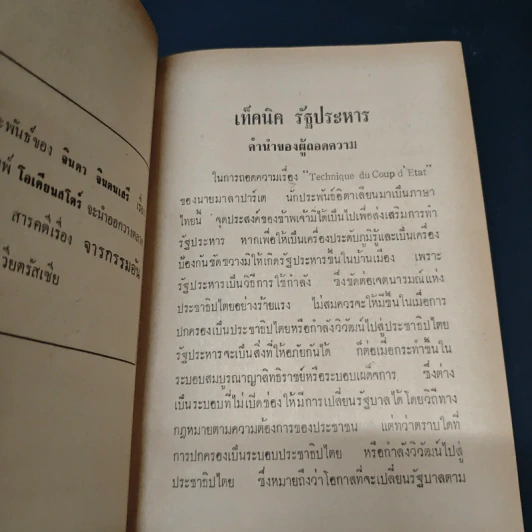 ะพันธ์ของ จินดา จินตนเสรี เรื่อง
พ์ โอเดียนสโตร์ จะนำออกวางตลาด
สารคดีเรื่อง จารกรรมอัน
เวียตรัสเซีย
เท็คนิค รัฐประหาร
คำนำของผู้ถอดความ
ในการถอดความเรื่อง "Technique du Coup d'Etat"
ของนายมาลาปาร์เต นักประพันธ์อิตาเลียนมาเป็นภาษา
ไทยนี้ จุดประสงค์ของข้าพเจ้ามิได้เป็นไปเพื่อส่งเสริมการทำ
รัฐประหาร หากเพื่อให้เป็นเครื่องประดับภูมิรู้และเป็นเครื่อง
ป้องกันขัดขวางมิให้เกิดรัฐประหารขึ้นในบ้านเมือง เพราะ
รัฐประหารเป็นวิธีการใช้กำลัง ซึ่งขัดต่อเจตนารมณ์แห่ง
ประชาธิปไตยอย่างร้ายแรง ไม่สมควรจะให้มีขึ้นในเมื่อการ
ปกครองเป็นประชาธิปไตยหรือกำลังวิวัฒน์ไปสู่ประชาธิปไตย
รัฐประหารจะเป็นสิ่งที่ให้อภัยกันได้ ก็ต่อเมื่อกระทำขึ้นใน
ระบอบสมบูรณาญาสิทธิราชย์หรือระบอบเผด็จการ ซึ่งต่าง
เป็นระบอบที่ไม่เปิดช่องให้มีการเปลี่ยนรัฐบาลได้โดยวิถีทาง
กฎหมายตามความต้องการของประชาชน แต่ทว่าตราบใดที่
การปกครองเป็นระบอบประชาธิปไตย หรือกำลังวิวัฒน์ไปสู่
ประชาธิปไตย ซึ่งหมายถึงว่าโอกาสที่จะเปลี่ยนรัฐบาลตาม